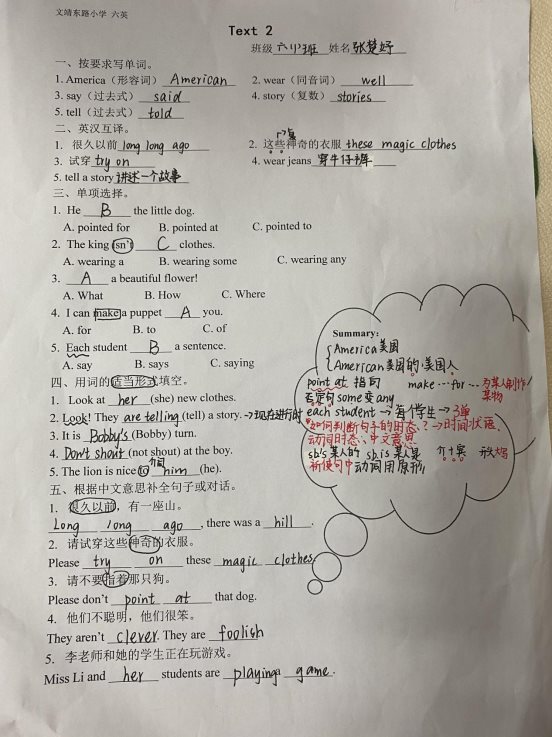 文靖东路小学 六英
Text 2
班级 六(1)班 姓名 张楚妤
一、按要求写单词。
1. America（形容词） American 2. wear（同音词） well
3. say（过去式） said 4. story（复数） stories
5. tell（过去式） told
二、英汉互译。
1. 很久以前 long long ago 2. 这些神奇的衣服 these magic clothes
3. 试穿 try on 4. wear jeans 穿牛仔裤
5. tell a story 讲述一个故事
三、单项选择。
1. He B the little dog.
A. pointed for B. pointed at C. pointed to
2. The king isn't C clothes.
A. wearing a B. wearing some C. wearing any
3. A a beautiful flower!
A. What B. How C. Where
4. I can make a puppet A you.
A. for B. to C. of
5. Each student B a sentence.
A. say B. says C. saying
四、用词的适当形式填空。
1. Look at her (she) new clothes.
2. Look! They are telling (tell) a story. → 现在进行时
3. It is Bobby's (Bobby) turn.
4. Don't shout (not shout) at the boy.
介词
5. The lion is nice to him (he).
五、根据中文意思补全句子或对话。
1. 很久以前，有一座山。
Long long ago , there was a hill .
2. 请试穿这些神奇的衣服。
Please try on these magic clothes.
3. 请不要指着那只狗。
Please don't point at that dog.
4. 他们不聪明，他们很笨。
They aren't clever. They are foolish
5. 李老师和她的学生正在玩游戏。
Miss Li and her students are playing a game.
Summary:
America 美国
American 美国的,美国人
point at 指向 make … for … 为某人制作某物
否定句 some 变 any
each student → 每个学生 → 3单
如何判断句子的时态？→ 时间状语
动词时态、中文意思
sb's 某人的 sb is 某人是 介+宾
祈使句中动词用原形